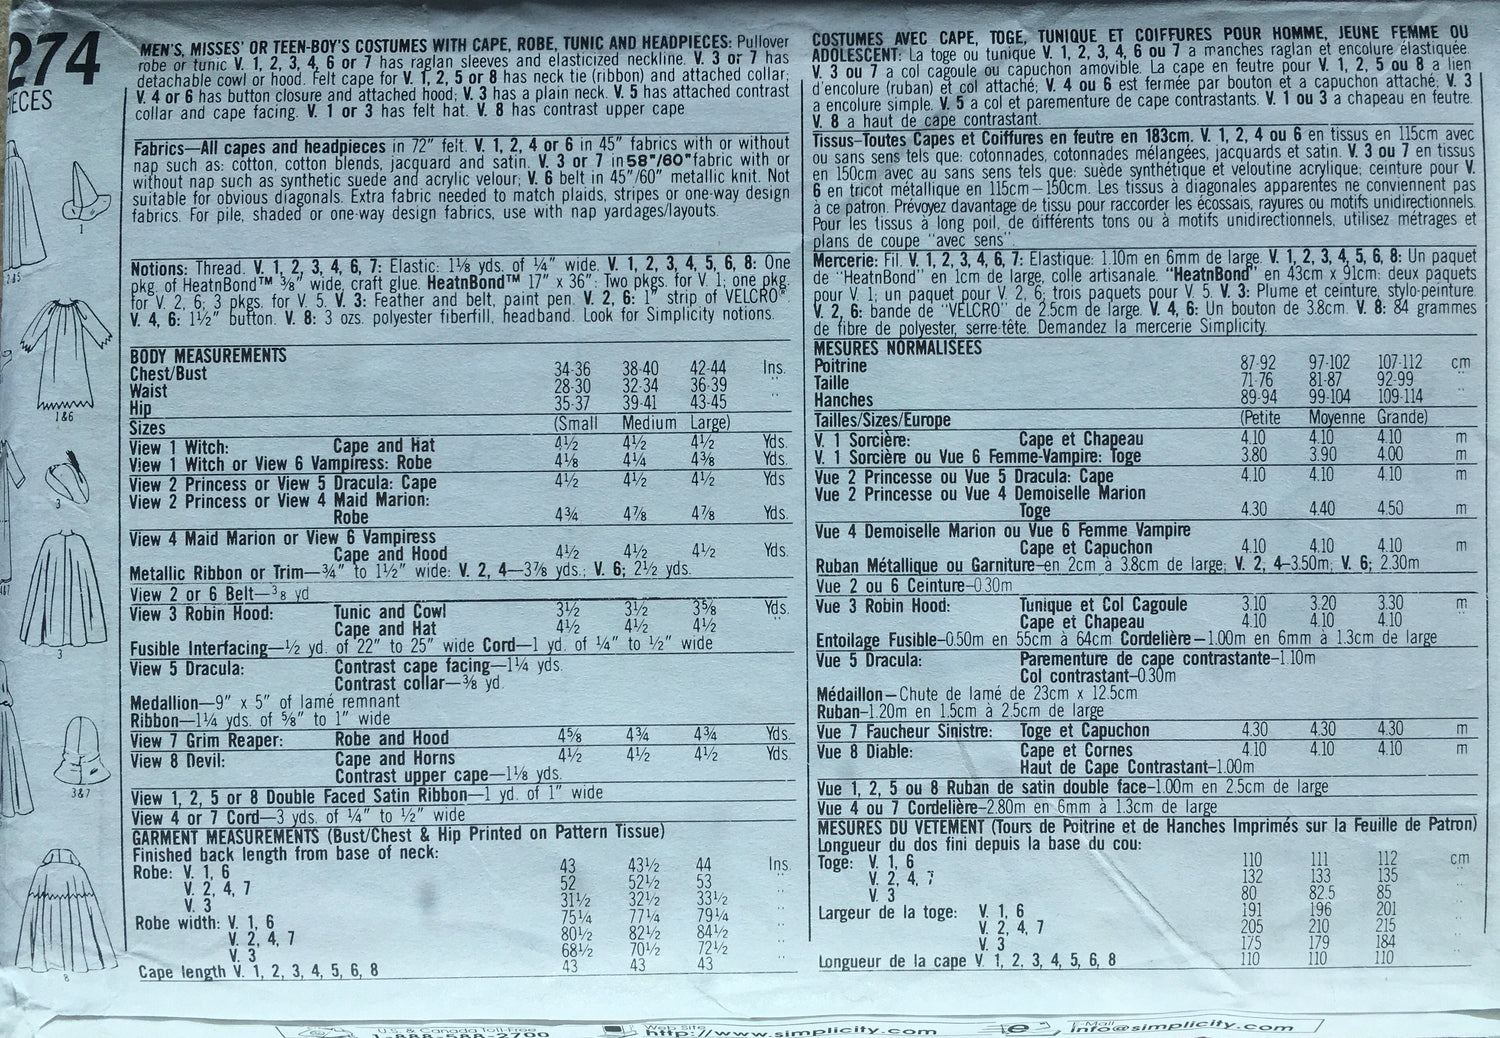 274
PIECES
MEN'S, MISSES' OR TEEN-BOY'S COSTUMES WITH CAPE, ROBE, TUNIC AND HEADPIECES: Pullover
robe or tunic V. 1, 2, 3, 4, 6 or 7 has raglan sleeves and elasticized neckline. V. 3 or 7 has
detachable cowl or hood. Felt cape for V. 1, 2, 5 or 8 has neck tie (ribbon) and attached collar;
V. 4 or 6 has button closure and attached hood; V. 3 has a plain neck. V. 5 has attached contrast
collar and cape facing. V. 1 or 3 has felt hat. V. 8 has contrast upper cape
Fabrics—All capes and headpieces in 72" felt. V. 1, 2, 4 or 6 in 45" fabrics with or without
nap such as: cotton, cotton blends, jacquard and satin. V. 3 or 7 in 58"/60" fabric with or
without nap such as synthetic suede and acrylic velour; V. 6 belt in 45"/60" metallic knit. Not
suitable for obvious diagonals. Extra fabric needed to match plaids, stripes or one-way design
fabrics. For pile, shaded or one-way design fabrics, use with nap yardages/layouts.
Notions: Thread. V. 1, 2, 3, 4, 6, 7: Elastic: 1⅛ yds. of ¼" wide. V. 1, 2, 3, 4, 5, 6, 8: One
pkg. of HeatnBond™ ⅜" wide, craft glue. HeatnBond™ 17" x 36": Two pkgs. for V. 1; one pkg.
for V. 2, 6; 3 pkgs. for V. 5. V. 3: Feather and belt, paint pen. V. 2, 6: 1" strip of VELCRO®
V. 4, 6: 1½" button. V. 8: 3 ozs. polyester fiberfill, headband. Look for Simplicity notions.
BODY MEASUREMENTS
Chest/Bust 34-36 38-40 42-44 Ins.
Waist 28-30 32-34 36-39 "
Hip 35-37 39-41 43-45 "
Sizes (Small Medium Large)
View 1 Witch: Cape and Hat 4½ 4½ 4½ Yds.
View 1 Witch or View 6 Vampiress: Robe 4⅛ 4¼ 4⅜ Yds.
View 2 Princess or View 5 Dracula: Cape 4½ 4½ 4½ Yds
View 2 Princess or View 4 Maid Marion:
Robe 4¾ 4⅞ 4⅞ Yds.
View 4 Maid Marion or View 6 Vampiress
Cape and Hood 4½ 4½ 4½ Yds.
Metallic Ribbon or Trim—¾" to 1½" wide: V. 2, 4—3⅞ yds.; V. 6; 2½ yds.
View 2 or 6 Belt—⅜ yd
View 3 Robin Hood: Tunic and Cowl 3½ 3½ 3⅝ Yds.
Cape and Hat 4½ 4½ 4½ "
Fusible Interfacing—½ yd. of 22" to 25" wide Cord—1 yd. of ¼" to ½" wide
View 5 Dracula: Contrast cape facing—1¼ yds.
Contrast collar—⅜ yd.
Medallion—9" x 5" of lamé remnant
Ribbon—1¼ yds. of ⅝" to 1" wide
View 7 Grim Reaper: Robe and Hood 4⅝ 4¾ 4¾ Yds.
View 8 Devil: Cape and Horns 4½ 4½ 4½ Yds.
Contrast upper cape—1⅛ yds.
View 1, 2, 5 or 8 Double Faced Satin Ribbon—1 yd. of 1" wide
View 4 or 7 Cord—3 yds. of ¼" to ½" wide
GARMENT MEASUREMENTS (Bust/Chest & Hip Printed on Pattern Tissue)
Finished back length from base of neck:
Robe: V. 1, 6 43 43½ 44 Ins.
V. 2, 4, 7 52 52½ 53 "
V. 3 31½ 32½ 33½ "
Robe width: V. 1, 6 75¼ 77¼ 79¼ "
V. 2, 4, 7 80½ 82½ 84½ "
V. 3 68½ 70½ 72½ "
Cape length V. 1, 2, 3, 4, 5, 6, 8 43 43 43 "
COSTUMES AVEC CAPE, TOGE, TUNIQUE ET COIFFURES POUR HOMME, JEUNE FEMME OU
ADOLESCENT: La toge ou tunique V. 1, 2, 3, 4, 6 ou 7 a manches raglan et encolure élastiquée.
V. 3 ou 7 a col cagoule ou capuchon amovible. La cape en feutre pour V. 1, 2, 5 ou 8 a lien
d'encolure (ruban) et col attaché; V. 4 ou 6 est fermée par bouton et a capuchon attaché; V. 3
a encolure simple. V. 5 a col et parementure de cape contrastants. V. 1 ou 3 a chapeau en feutre.
V. 8 a haut de cape contrastant.
Tissus-Toutes Capes et Coiffures en feutre en 183cm. V. 1, 2, 4 ou 6 en tissus en 115cm avec
ou sans sens tels que: cotonnades, cotonnades mélangées, jacquards et satin. V. 3 ou 7 en tissus
en 150cm avec au sans sens tels que: suède synthétique et veloutine acrylique; ceinture pour V.
6 en tricot métallique en 115cm—150cm. Les tissus à diagonales apparentes ne conviennent pas
à ce patron. Prévoyez davantage de tissu pour raccorder les écossais, rayures ou motifs unidirectionnels.
Pour les tissus à long poil, de différents tons ou à motifs unidirectionnels, utilisez métrages et
plans de coupe "avec sens".
Mercerie: Fil. V. 1, 2, 3, 4, 6, 7: Elastique: 1.10m en 6mm de large. V. 1, 2, 3, 4, 5, 6, 8: Un paquet
de "HeatnBond" en 1cm de large, colle artisanale. "HeatnBond" en 43cm x 91cm: deux paquets
pour V. 1; un paquet pour V. 2, 6; trois paquets pour V. 5. V. 3: Plume et ceinture, stylo-peinture.
V. 2, 6: bande de "VELCRO" de 2.5cm de large. V. 4, 6: Un bouton de 3.8cm. V. 8: 84 grammes
de fibre de polyester, serre-tête. Demandez la mercerie Simplicity.
MESURES NORMALISEES
Poitrine 87-92 97-102 107-112 cm
Taille 71-76 81-87 92-99 "
Hanches 89-94 99-104 109-114 "
Tailles/Sizes/Europe (Petite Moyenne Grande)
V. 1 Sorcière: Cape et Chapeau 4.10 4.10 4.10 m
V. 1 Sorcière ou Vue 6 Femme-Vampire: Toge 3.80 3.90 4.00 m
Vue 2 Princesse ou Vue 5 Dracula: Cape 4.10 4.10 4.10 m
Vue 2 Princesse ou Vue 4 Demoiselle Marion
Toge 4.30 4.40 4.50 m
Vue 4 Demoiselle Marion ou Vue 6 Femme Vampire
Cape et Capuchon 4.10 4.10 4.10 m
Ruban Métallique ou Garniture—en 2cm à 3.8cm de large; V. 2, 4—3.50m; V. 6; 2.30m
Vue 2 ou 6 Ceinture—0.30m
Vue 3 Robin Hood: Tunique et Col Cagoule 3.10 3.20 3.30 m
Cape et Chapeau 4.10 4.10 4.10 "
Entoilage Fusible—0.50m en 55cm à 64cm Cordelière—1.00m en 6mm à 1.3cm de large
Vue 5 Dracula: Parementure de cape contrastante—1.10m
Col contrastant—0.30m
Médaillon—Chute de lamé de 23cm x 12.5cm
Ruban—1.20m en 1.5cm à 2.5cm de large
Vue 7 Faucheur Sinistre: Toge et Capuchon 4.30 4.30 4.30 m
Vue 8 Diable: Cape et Cornes 4.10 4.10 4.10 m
Haut de Cape Contrastant—1.00m
Vue 1, 2, 5 ou 8 Ruban de satin double face—1.00m en 2.5cm de large
Vue 4 ou 7 Cordelière—2.80m en 6mm à 1.3cm de large
MESURES DU VETEMENT (Tours de Poitrine et de Hanches Imprimés sur la Feuille de Patron)
Longueur du dos fini depuis la base du cou:
Toge: V. 1, 6 110 111 112 cm
V. 2, 4, 7 132 133 135 "
V. 3 80 82.5 85 "
Largeur de la toge: V. 1, 6 191 196 201 "
V. 2, 4, 7 205 210 215 "
V. 3 175 179 184 "
Longueur de la cape V. 1, 2, 3, 4, 5, 6, 8 110 110 110 "
1
1&6
3
3
3&7
8
U.S. & Canada Toll-Free
1-888-588-2700
Web Site
http://www.simplicity.com
E-Mail
info@simplicity.com